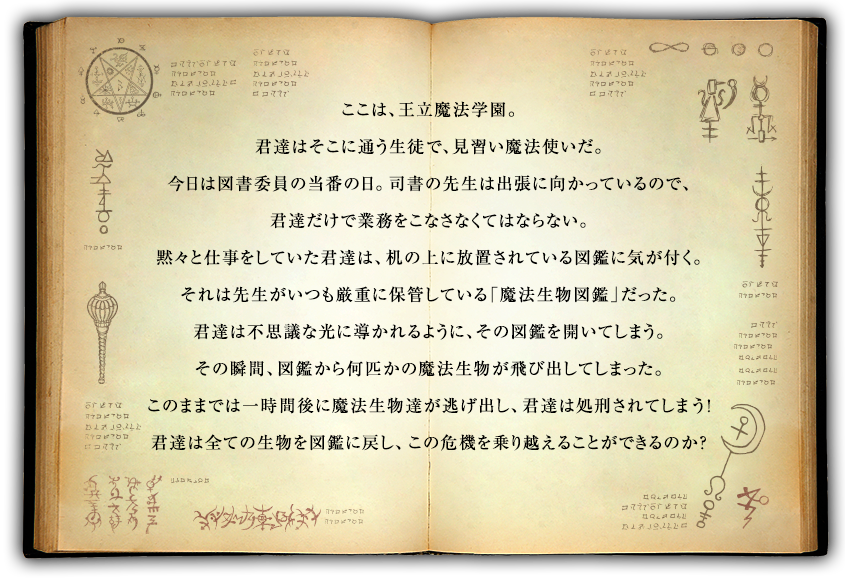 ここは、王立魔法学園。
君達はそこに通う生徒で、見習い魔法使いだ。
今日は図書委員の当番の日。司書の先生は出張に向かっているので、
君達だけで業務をこなさなくてはならない。
黙々と仕事をしていた君達は、机の上に放置されている図鑑に気が付く。
それは先生がいつも厳重に保管している「魔法生物図鑑」だった。
君達は不思議な光に導かれるように、その図鑑を開いてしまう。
その瞬間、図鑑から何匹かの魔法生物が飛び出してしまった。
このままでは一時間後に魔法生物達が逃げ出し、君達は処刑されてしまう!
君達は全ての生物を図鑑に戻し、この危機を乗り越えることができるのか?